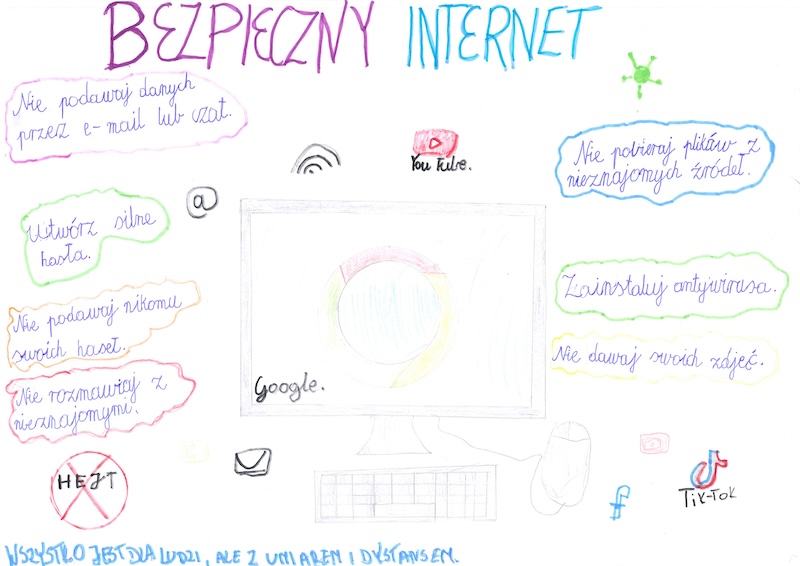 BEZPIECZNY INTERNET
Nie podawaj danych
przez e-mail lub czat.
YouTube.
Nie pobieraj plików z
nieznajomych źródeł.
@
Utwórz silne
hasła.
Zainstaluj antywirusa.
Nie podawaj nikomu
swoich haseł.
Nie dawaj swoich zdjęć.
Google.
Nie rozmawiaj z
nieznajomymi.
HEJT
f
TiK-ToK
WSZYSTKO JEST DLA LUDZI, ALE Z UMIAREM I DYSTANSEM.